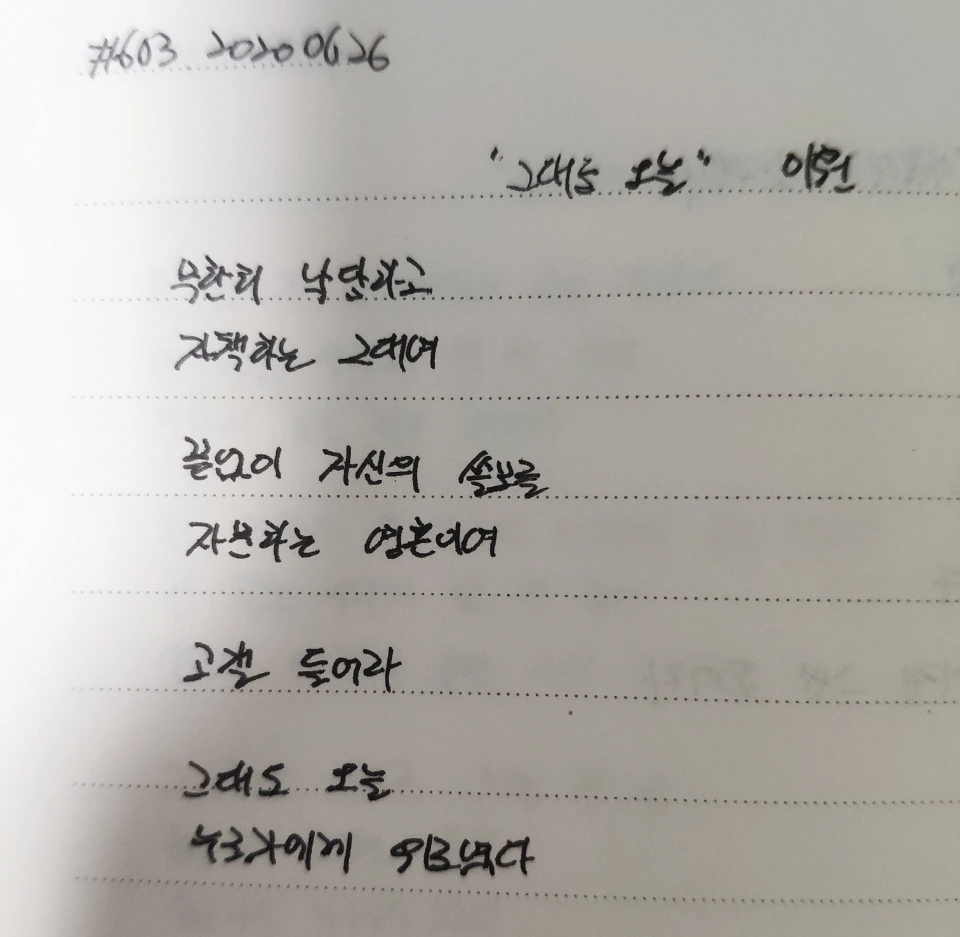 #603 20200626
"그대도 오늘" 이훤
무한히 낙담하고
자책하는 그대여
끝없이 자신의 쓸모를
자문하는 영혼이여
고갤 들어라
그대도 오늘
누군가에게 위로였다